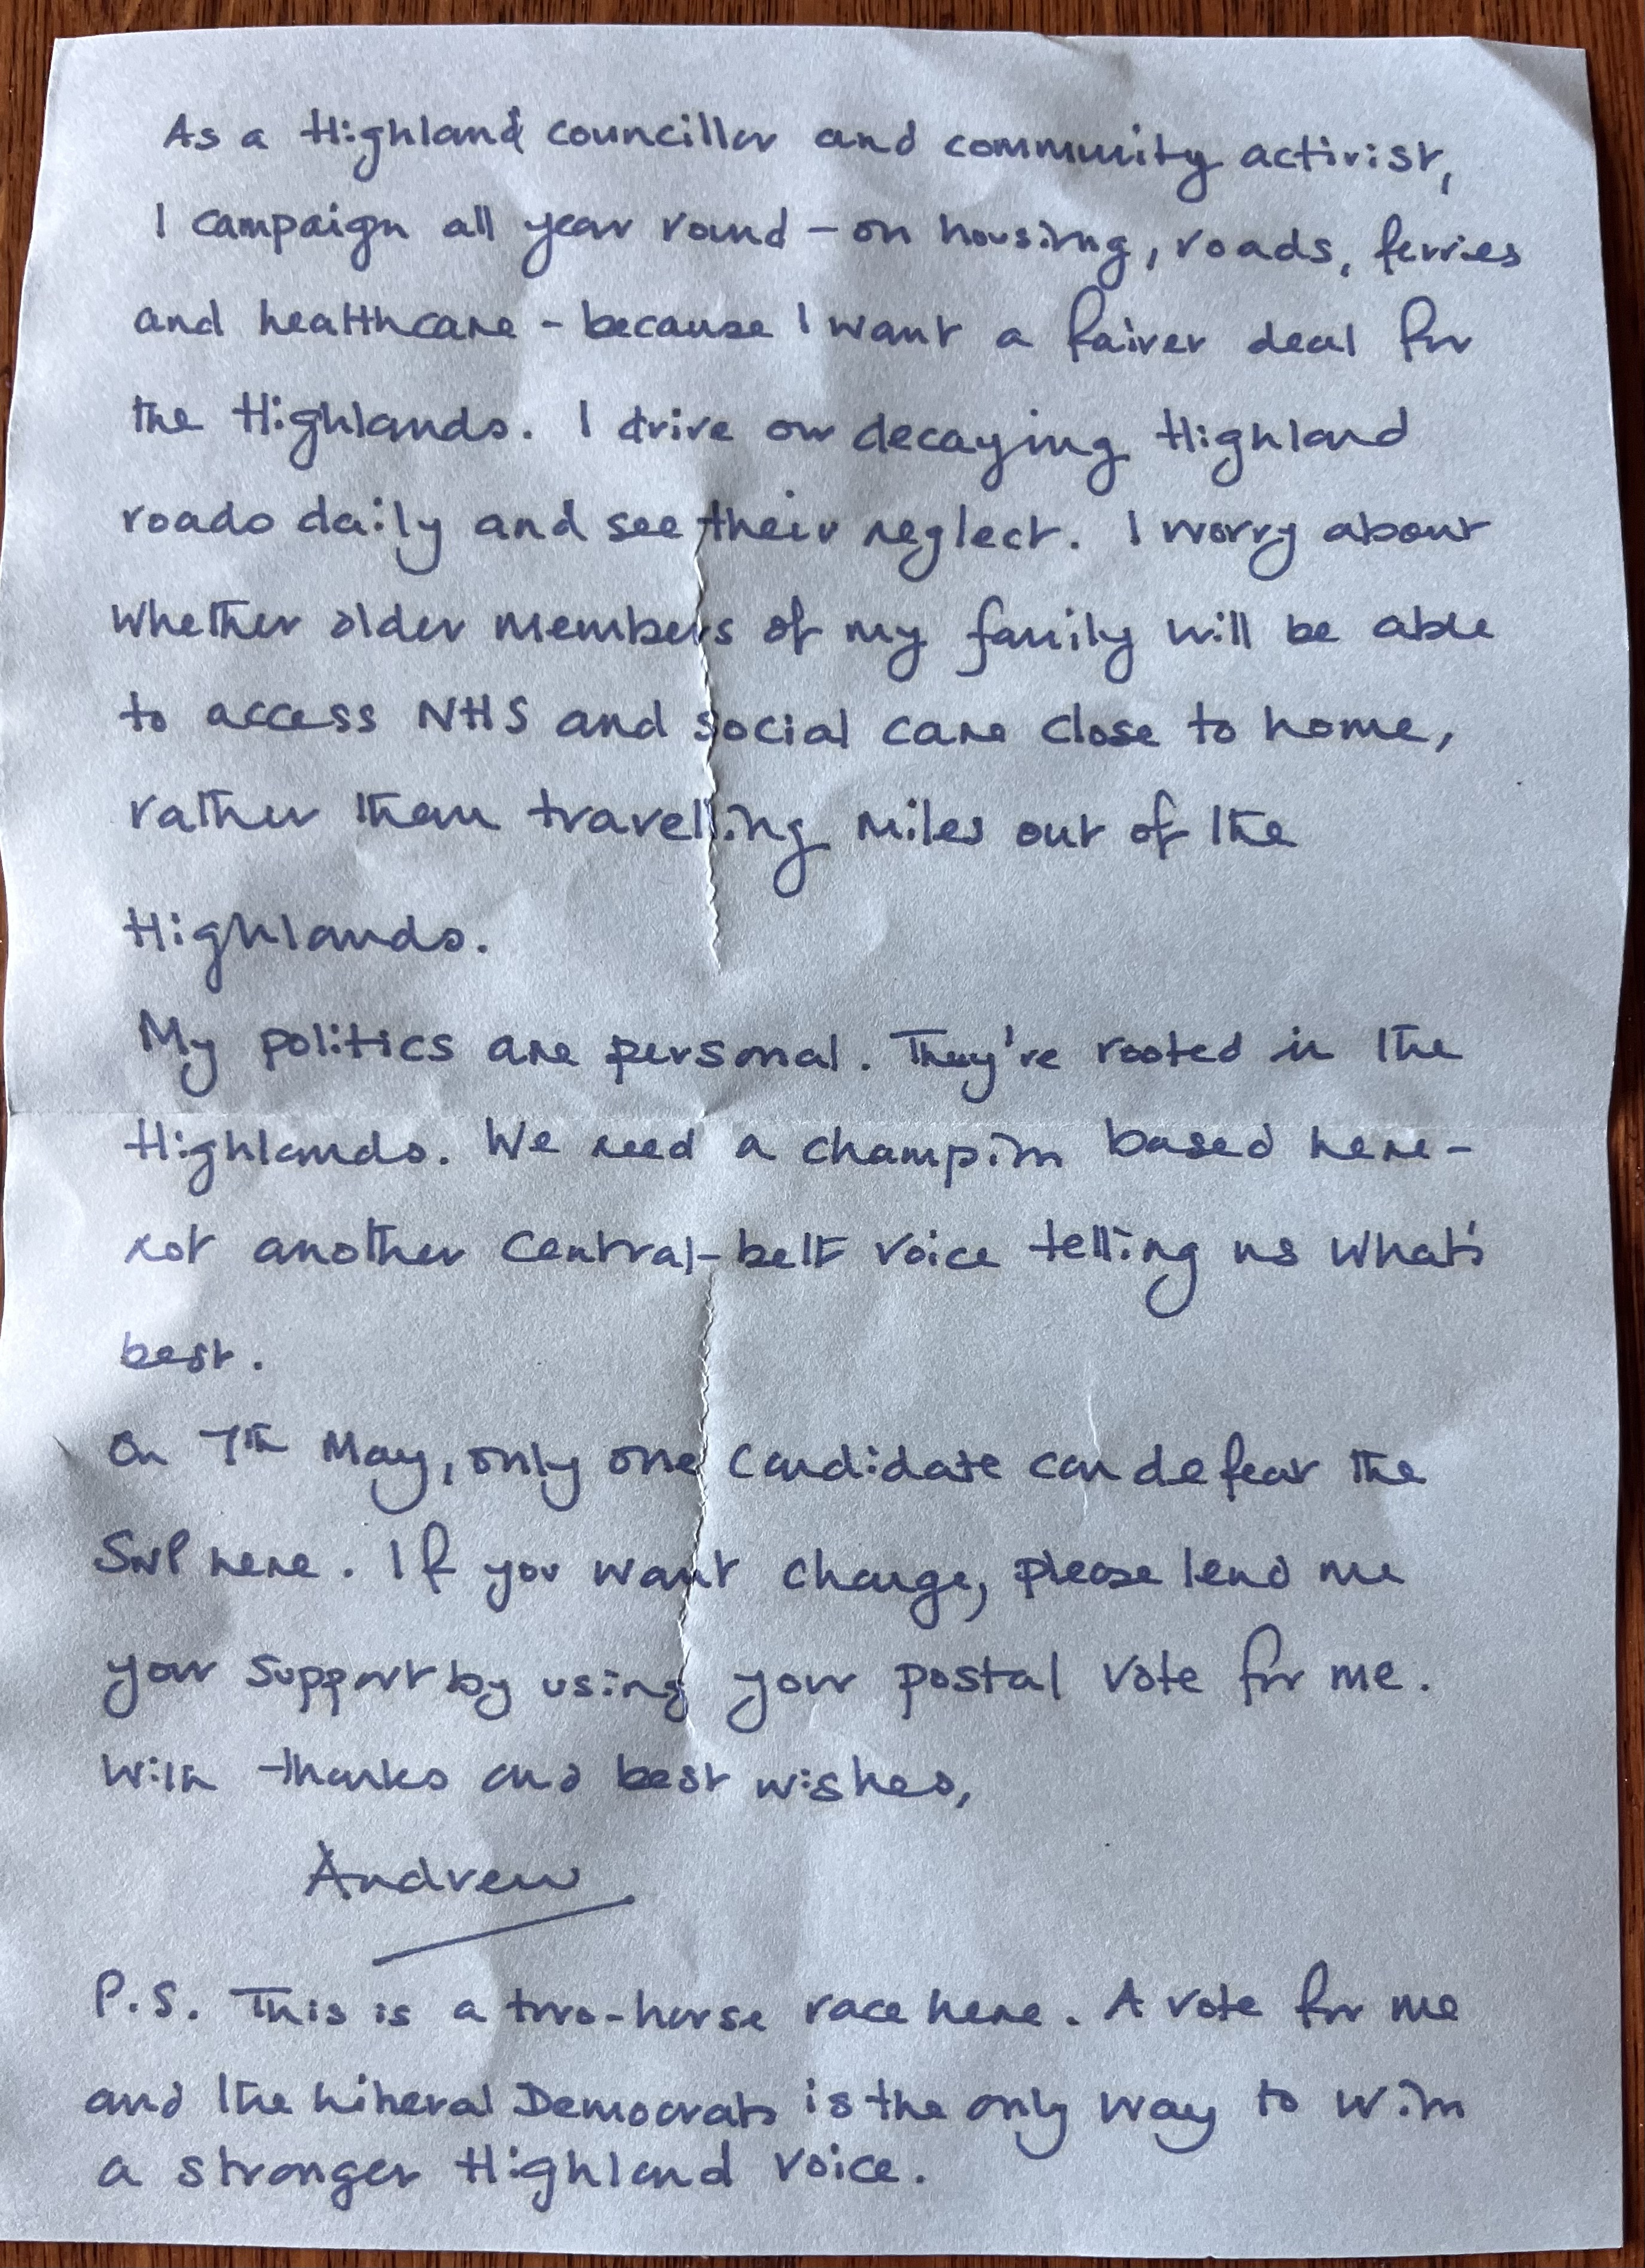 As a Highland councillor and community activist,
I campaign all year round - on housing, roads, ferries
and healthcare - because I want a fairer deal for
the Highlands. I drive on decaying Highland
roads daily and see their neglect. I worry about
whether older members of my family will be able
to access NHS and social care close to home,
rather than travelling miles out of the
Highlands.
My politics are personal. They're rooted in the
Highlands. We need a champion based here -
not another central-belt voice telling us what's
best.
On 7th May, only one candidate can defeat the
SNP here. If you want change, please lend me
your support by using your postal vote for me.
With thanks and best wishes,
Andrew
P.S. This is a two-horse race here. A vote for me
and the Liberal Democrats is the only way to win
a stronger Highland voice.